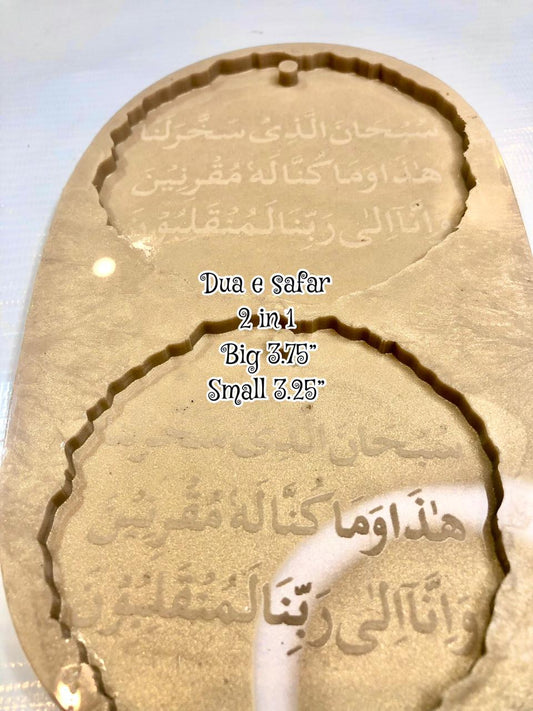 سُبْحَانَ الَّذِىْ سَخَّرَلَنَا
هٰذَا وَمَا كُنَّا لَهٗ مُقْرِنِيْنَ
وَاِنَّآ اِلٰى رَبِّنَا لَمُنْقَلِبُوْنَ
Dua e safar
2 in 1
Big 3.75”
Small 3.25”
سُبْحَانَ الَّذِىْ سَخَّرَلَنَا
هٰذَا وَمَا كُنَّا لَهٗ مُقْرِنِيْنَ
وَاِنَّآ اِلٰى رَبِّنَا لَمُنْقَلِبُوْنَ